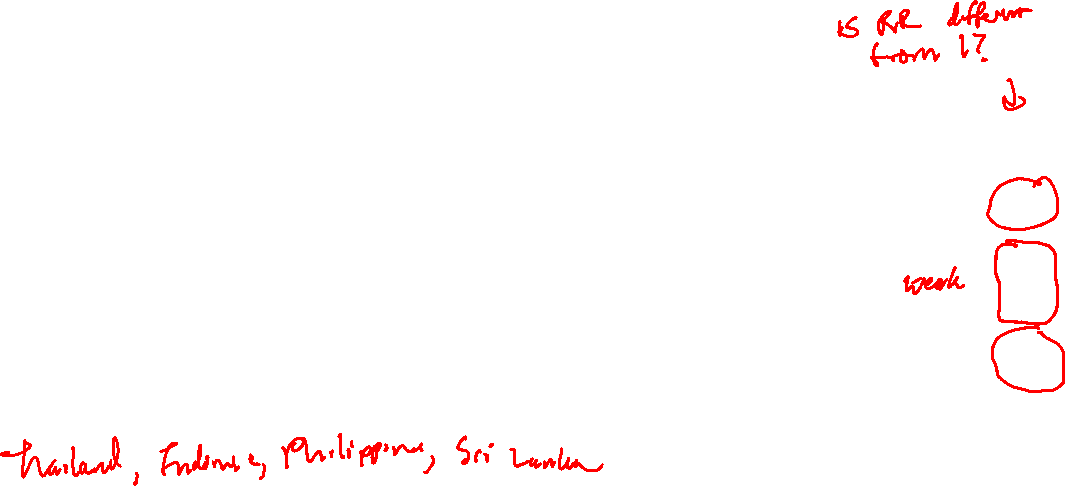 is RR different
from 1?
weak
Thailand, Philippines, Sri Lanka